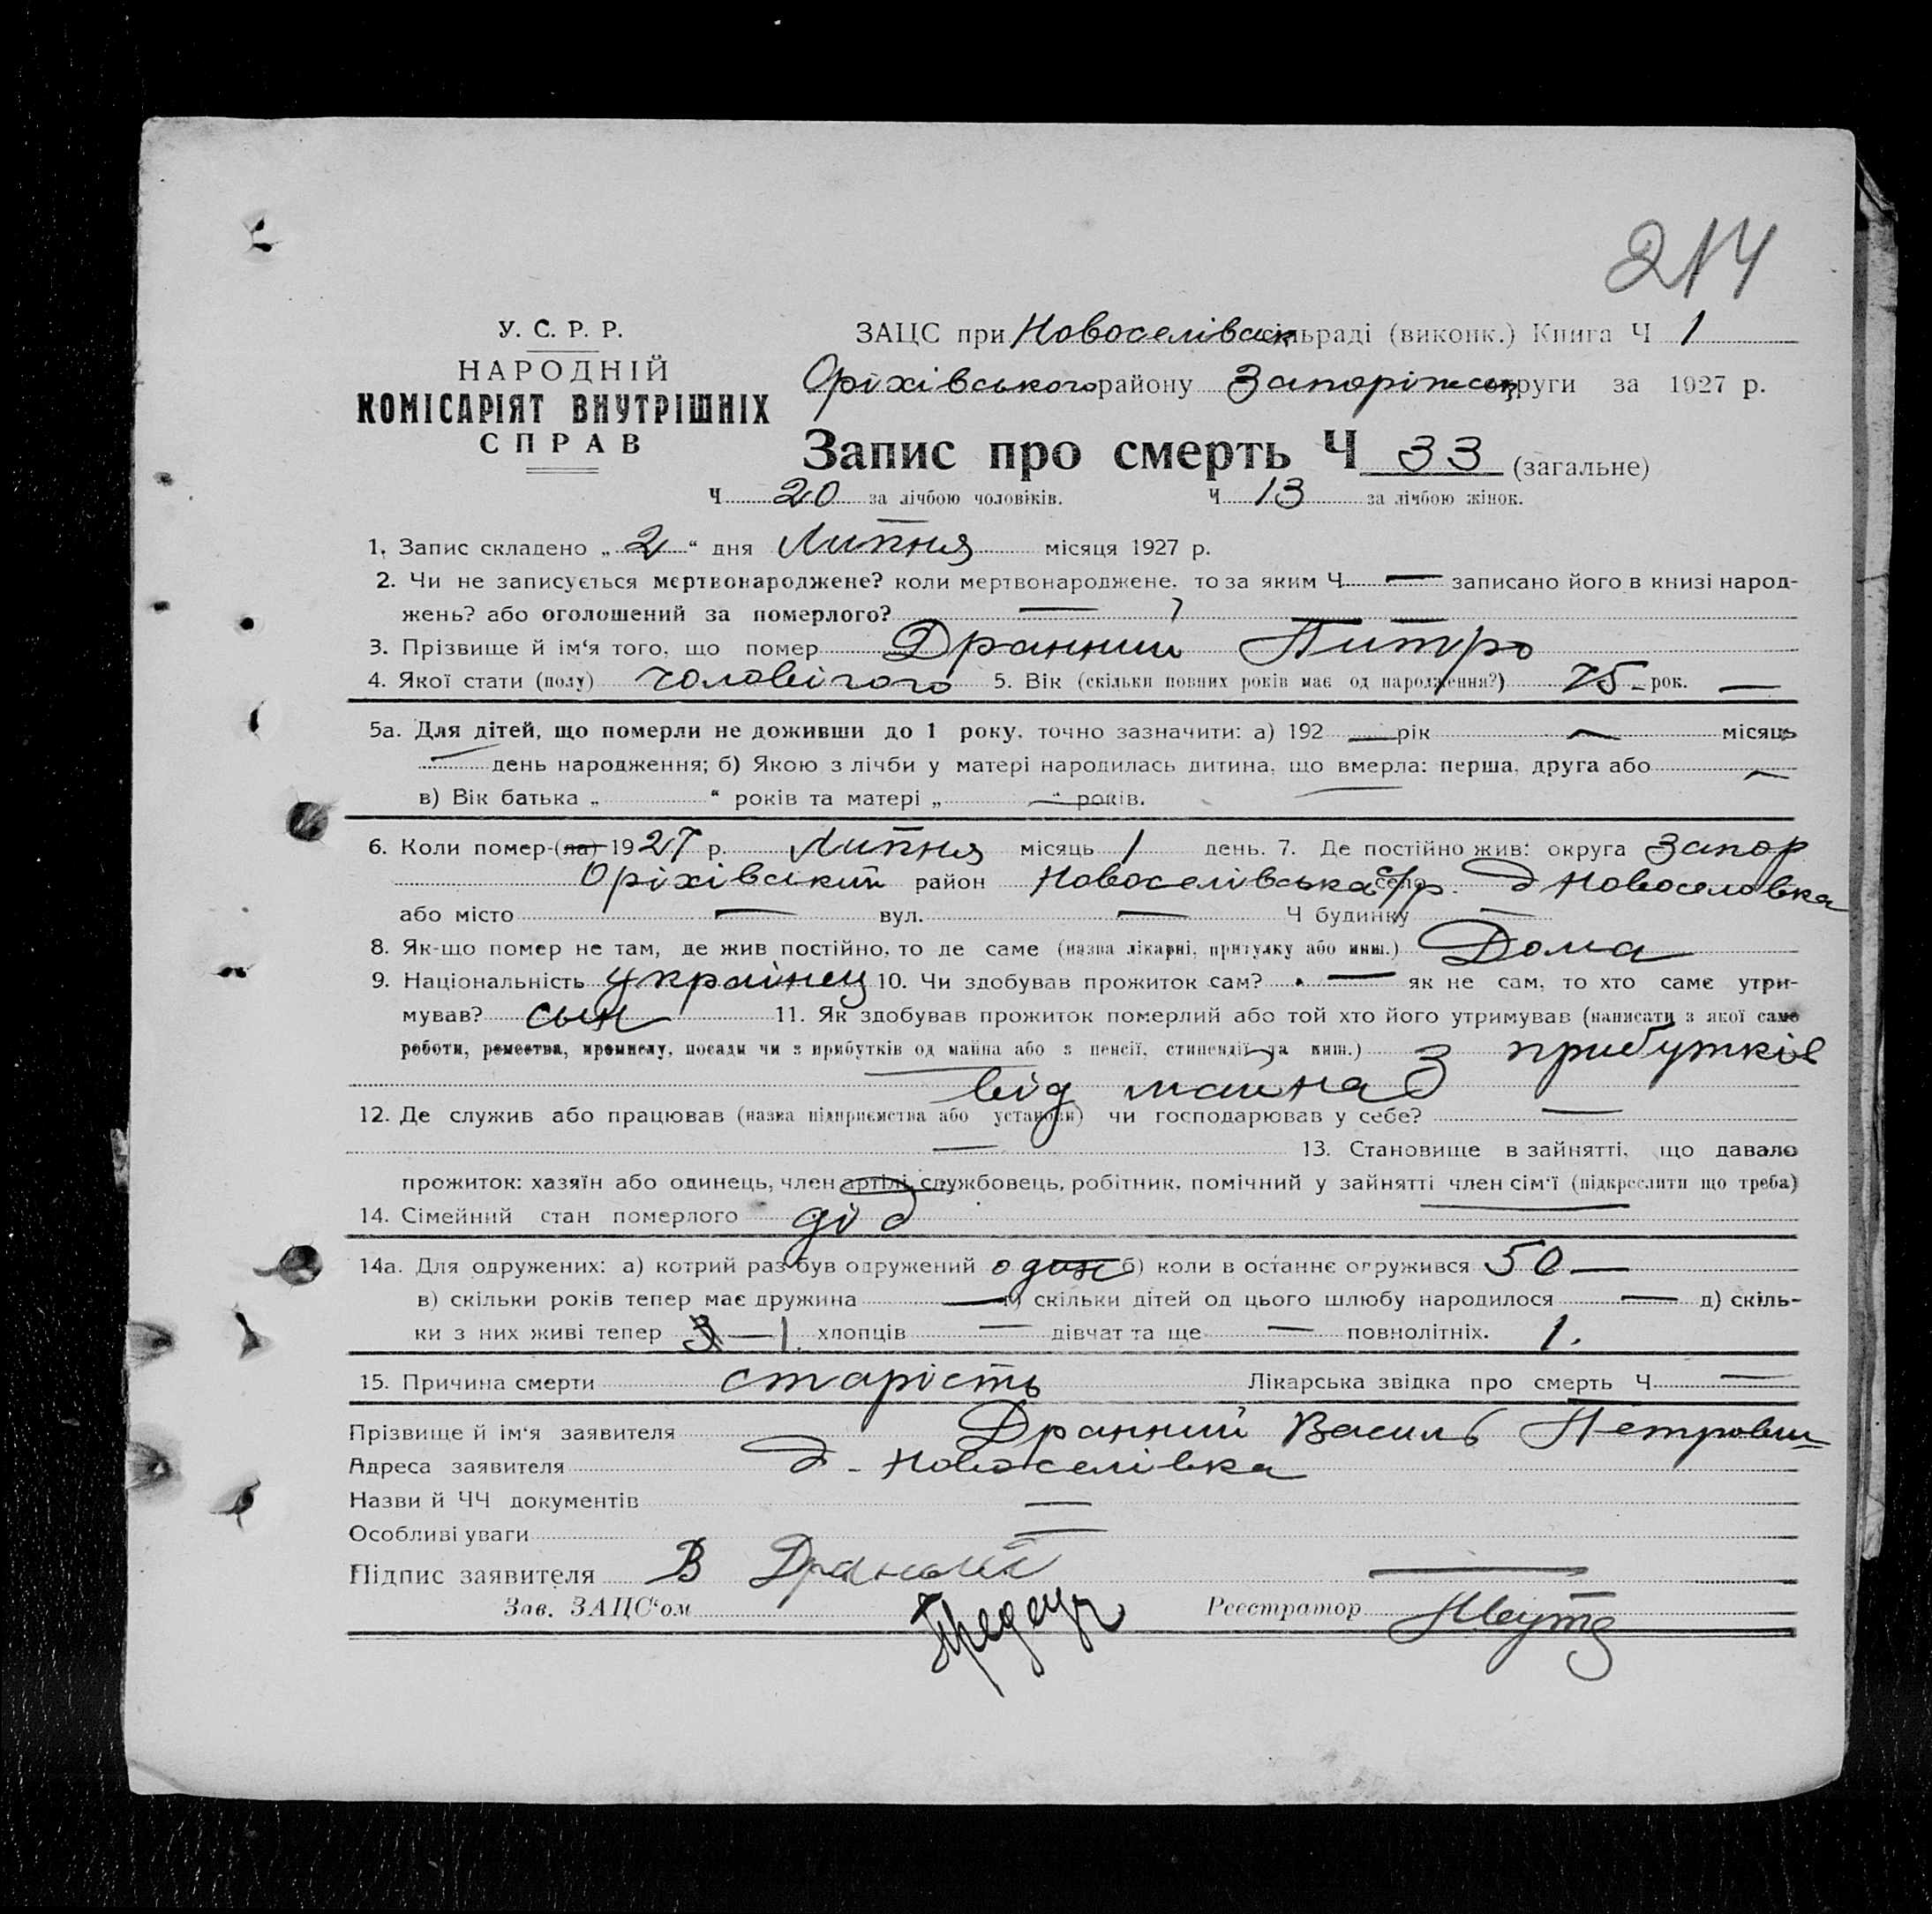 214
У. С. Р. Р.
НАРОДНІЙ
КОМІСАРІЯТ ВНУТРІШНІХ
СПРАВ
ЗАЦС при Новоселівськ сільраді (виконк.) Книга Ч 1
Оріхівського району Запоріжськ округи за 1927 р.
Запис про смерть Ч 33 (загальне)
Ч 20 за лічбою чоловіків. Ч 13 за лічбою жінок.
1. Запис складено „ 2 “ дня Липня місяця 1927 р.
2. Чи не записується мертвонароджене? коли мертвонароджене, то за яким Ч — записано його в книзі народ-
жень? або оголошений за померлого? —
3. Прізвище й ім‘я того, що помер Дранний Питро
4. Якої стати (полу) чоловічого 5. Вік (скільки повних років має од народження?) 75 рок. —
5а. Для дітей, що померли не доживши до 1 року, точно зазначити: а) 192 — рік — місяць
— день народження; б) Якою з лічби у матері народилась дитина, що вмерла: перша, друга або —
в) Вік батька „ “ років та матері „ — “ років.
6. Коли помер-(ла) 1927 р. Липня місяць 1 день. 7. Де постійно жив: округа Запор
Оріхівський район Новоселівська с/р. село д Новоселовка
або місто — вул. — Ч будинку —
8. Як-що помер не там, де жив постійно, то де саме (назва лікарні, притулку або инш.) Дома
9. Національність українец 10. Чи здобував прожиток сам? — як не сам, то хто саме утри-
мував? сын 11. Як здобував прожиток померлий або той хто його утримував (написати з якої саме
роботи, ремества, промислу, посади чи з прибутків од майна або з пенсії, стипендії та инш.) З прибутків
від майна
12. Де служив або працював (назва підприємства або установи) чи господарював у себе? —
— 13. Становище в зайнятті, що давало
прожиток: хазяїн або одинець, член артілі, службовець, робітник, помічний у зайнятті член сім‘ї (підкреслити що треба)
14. Сімейний стан померлого дід
14а. Для одружених: а) котрий раз був одружений один б) коли в останнє огружився 50 —
в) скільки років тепер має дружина — г) скільки дітей од цього шлюбу народилося — д) скіль-
ки з них живі тепер 3 — 1. хлопців — дівчат та ще — повнолітніх. 1.
15. Причина смерти старість Лікарська звідка про смерть Ч —
Прізвище й ім‘я заявителя Дранний Василь Петрович
Адреса заявителя д. Новоселівка
Назви й ЧЧ документів —
Особливі уваги —
Підпис заявителя В Дранний —
Зав. ЗАЦС‘ом Реєстратор